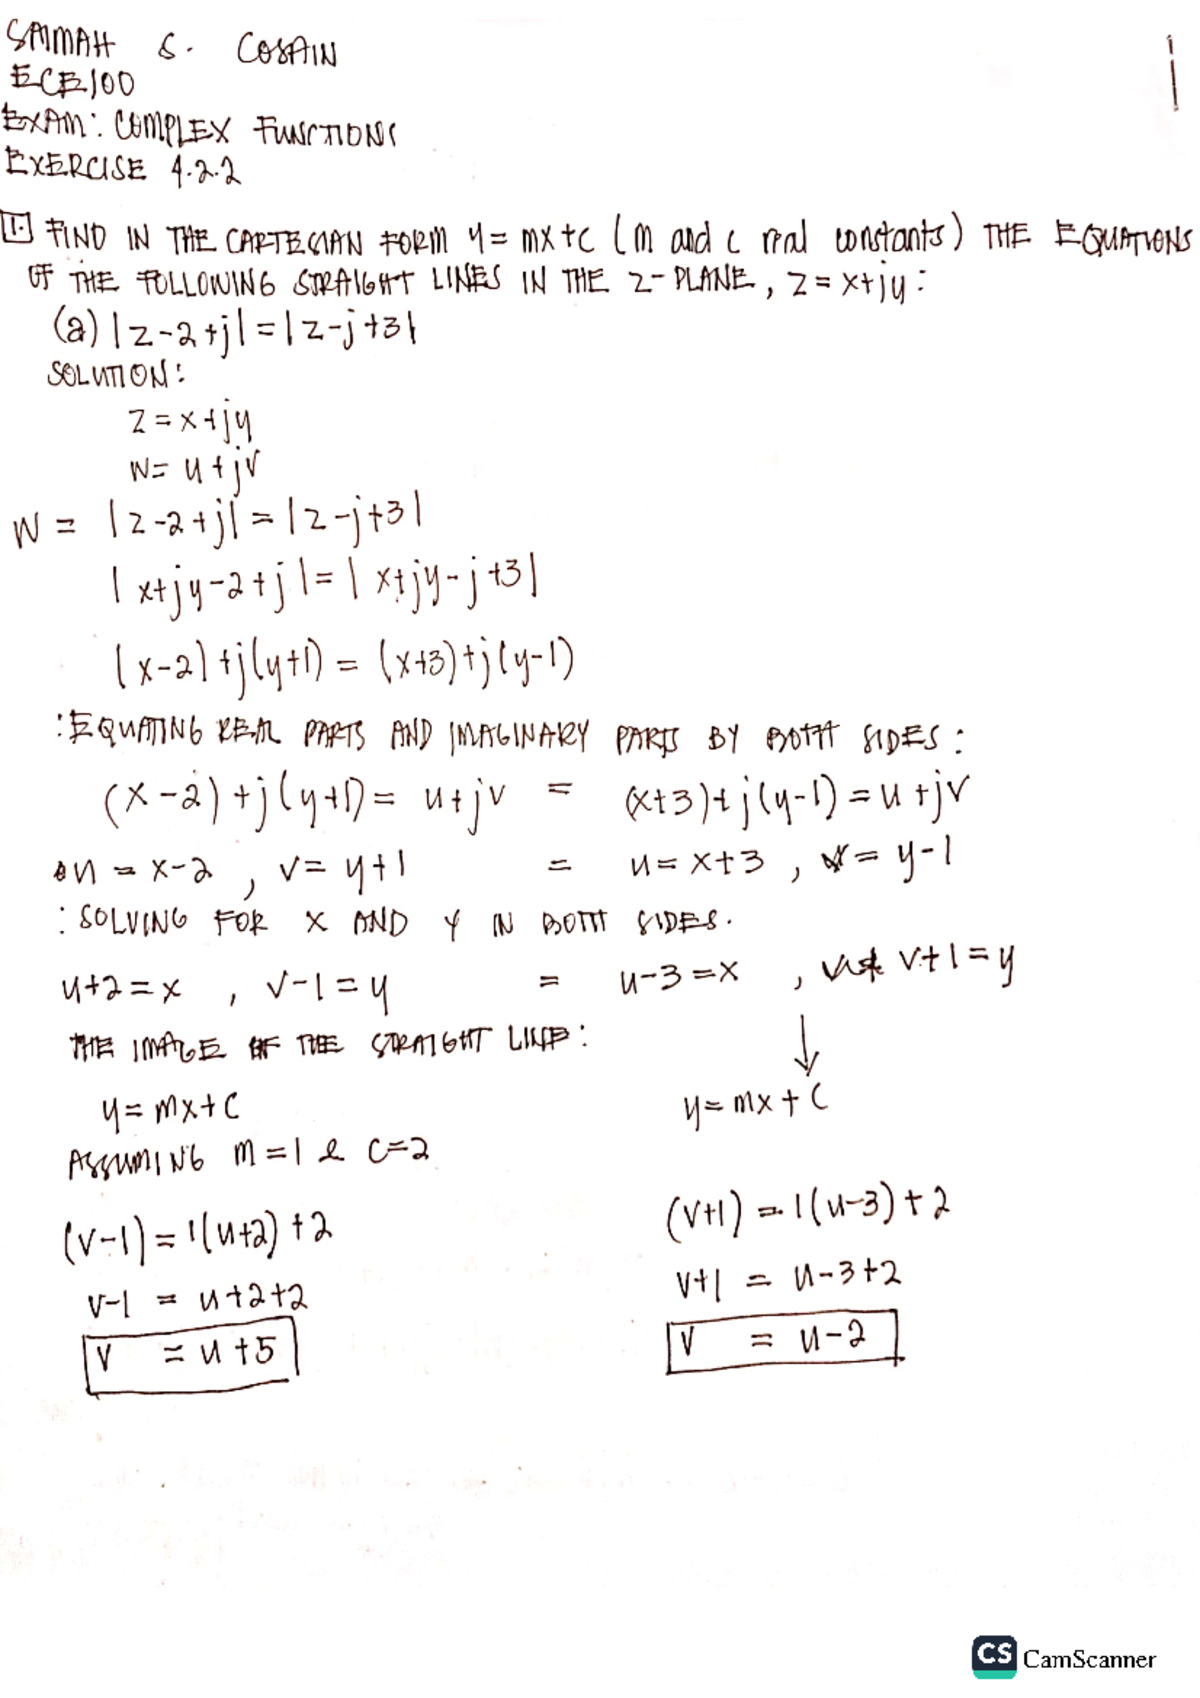 SAIMAH S. COSAIN
ECE100
EXAM: COMPLEX FUNCTIONS
EXERCISE 4.2.2
1. FIND IN THE CARTESIAN FORM y = mx+c (m and c real constants) THE EQUATIONS
OF THE FOLLOWING STRAIGHT LINES IN THE Z-PLANE, z = x+jy:
(a) |z-2+j| = |z-j+3|
SOLUTION:
z = x+jy
w = u+jv
W = |z-2+j| = |z-j+3|
|x+jy-2+j| = |x+jy-j+3|
(x-2)+j(y+1) = (x+3)+j(y-1)
:EQUATING REAL PARTS AND IMAGINARY PARTS BY BOTH SIDES:
(x-2)+j(y+1) = u+jv = (x+3)+j(y-1) = u+jv
u = x-2 , v = y+1 = u = x+3 , v = y-1
: SOLVING FOR X AND Y IN BOTH SIDES.
u+2 = x , v-1 = y = u-3 = x , v+1 = y
THE IMAGE OF THE STRAIGHT LINE: ↓
y = mx+c y = mx+c
ASSUMING m = 1 & c = 2
(v-1) = 1(u+2)+2 (v+1) = 1(u-3)+2
v-1 = u+2+2 v+1 = u-3+2
v = u+5 v = u-2
CS CamScanner